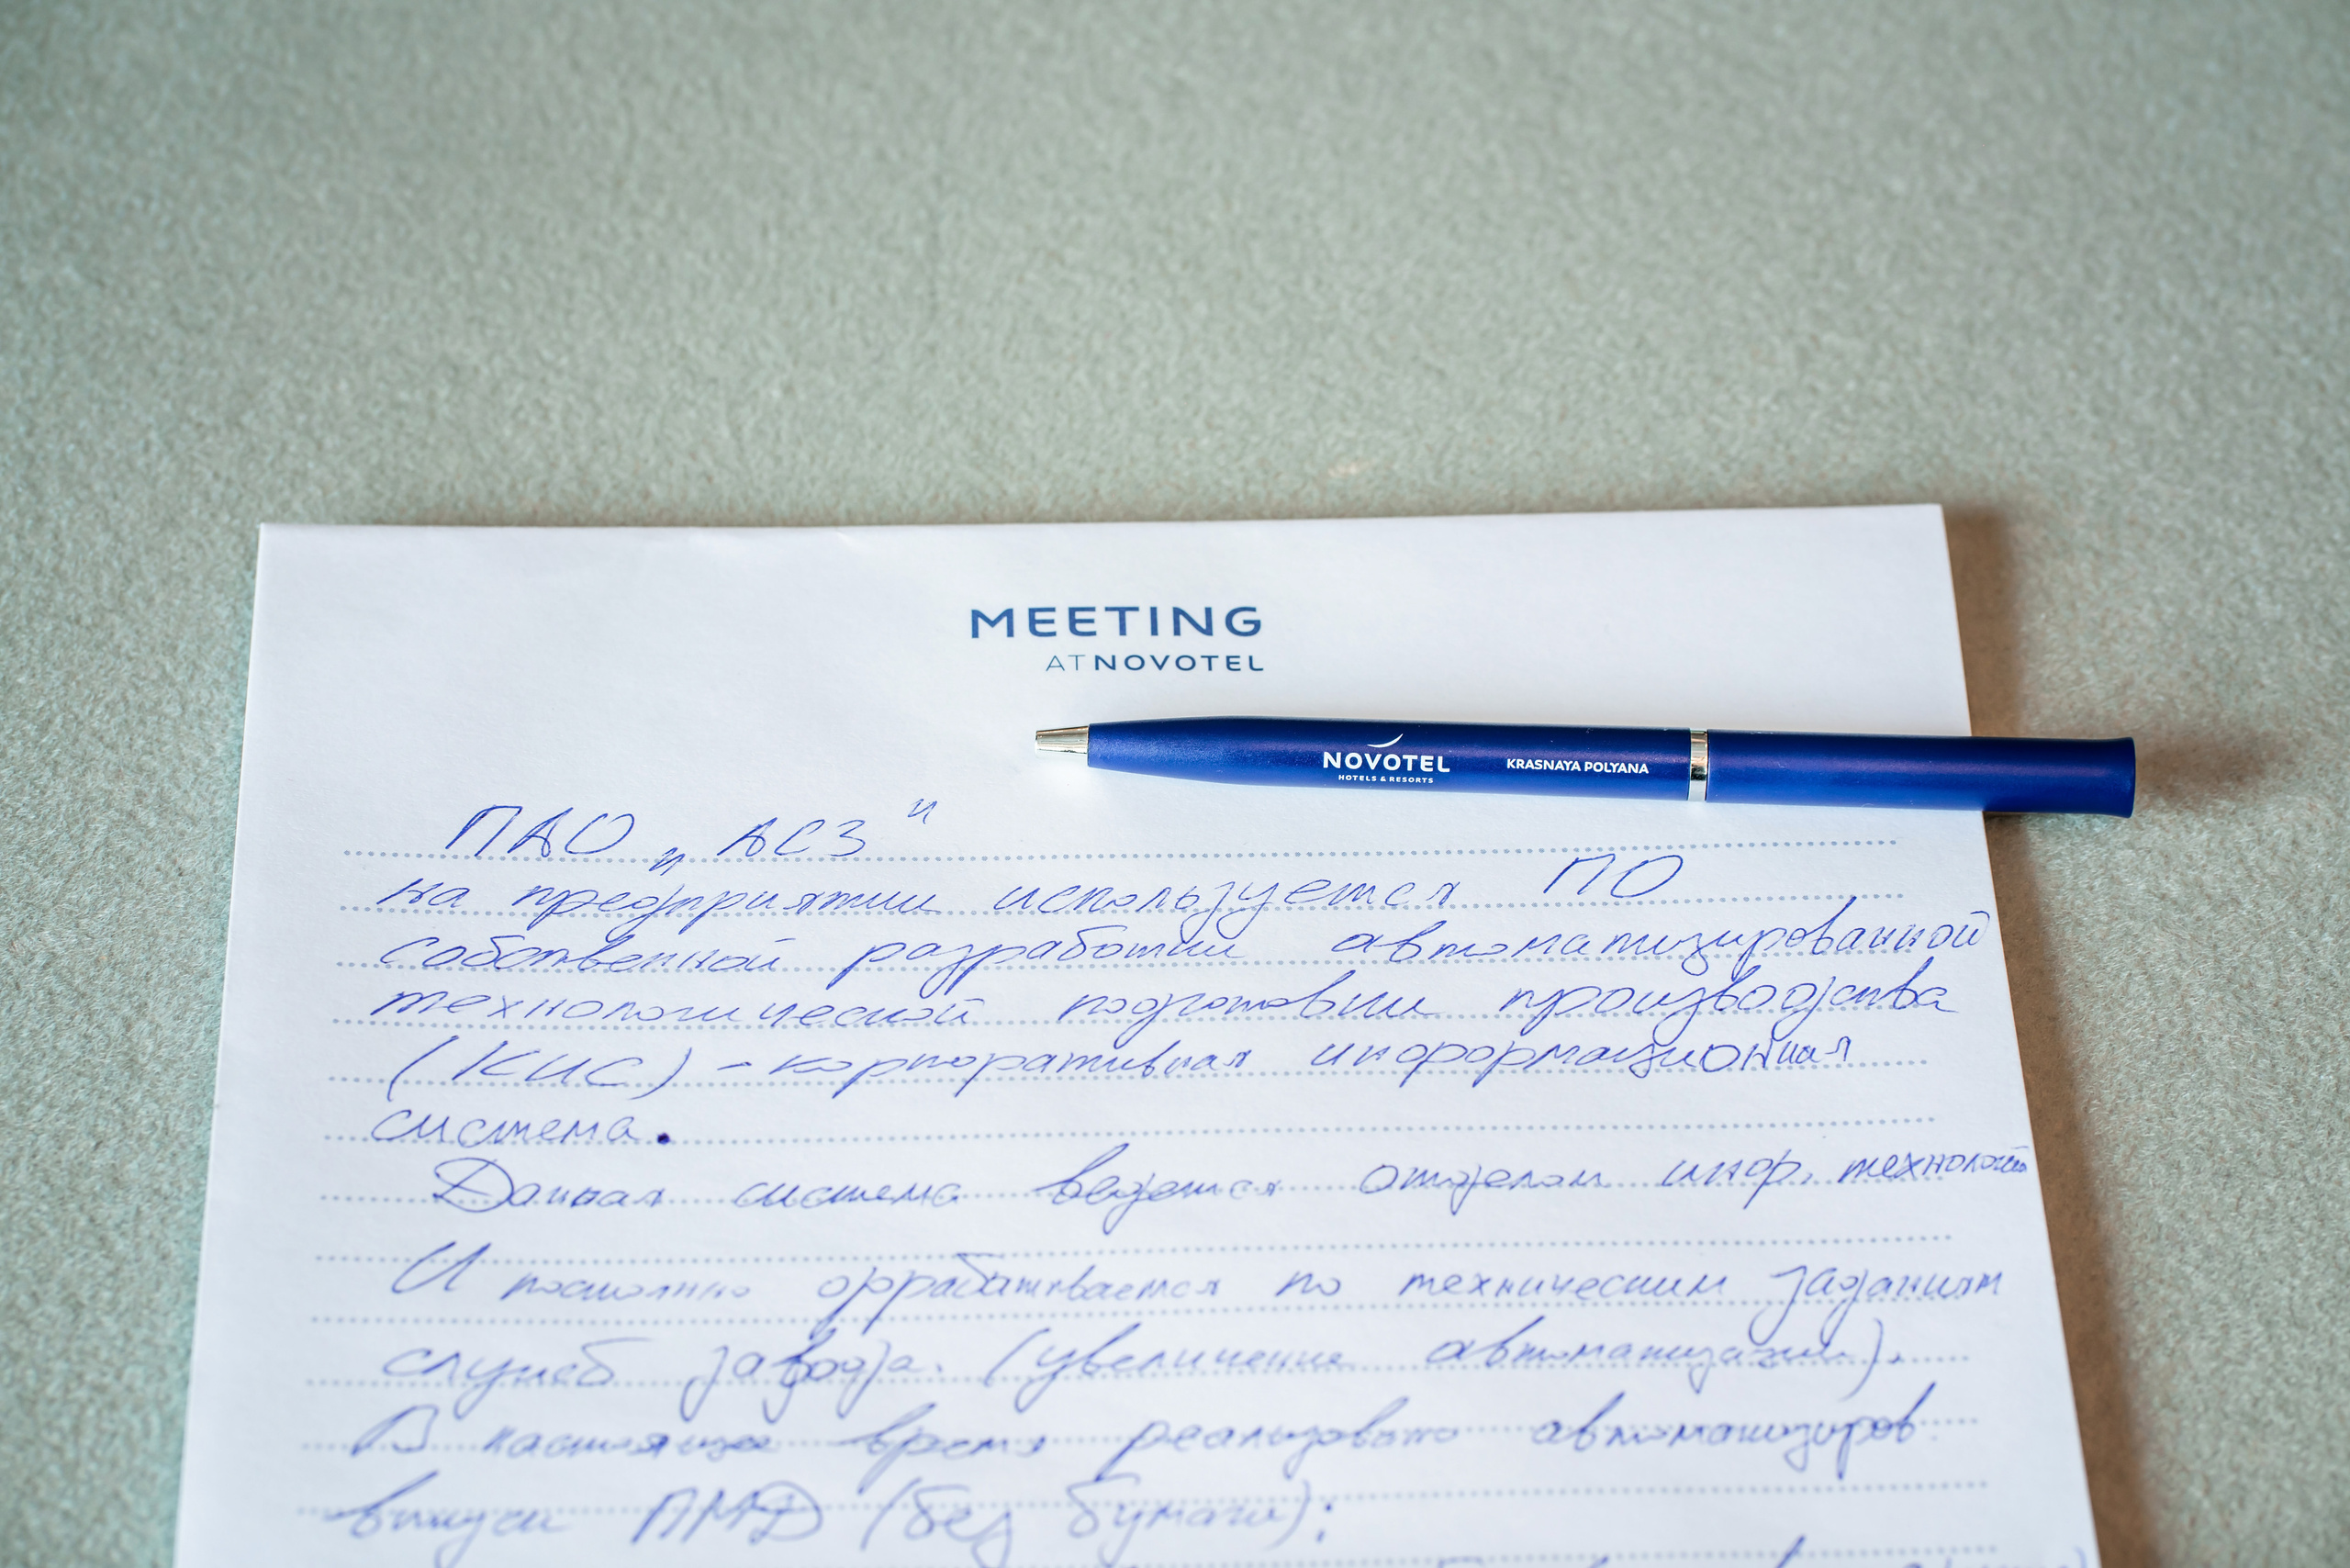 MEETING
AT NOVOTEL
NOVOTEL
HOTELS & RESORTS
KRASNAYA POLYANA
ПАО „АСЗ“
на предприятии используется ПО
собственной разработки автоматизированной
технологической подготовки производства
(КИС) - корпоративная информационная
система.
Данная система ведется отделом инф. технологий
И постоянно дорабатывается по техническим заданиям
служб завода. (увеличение автоматизации).
В настоящее время реализовано автоматизиров
выпуск ПМД (без бумаги):